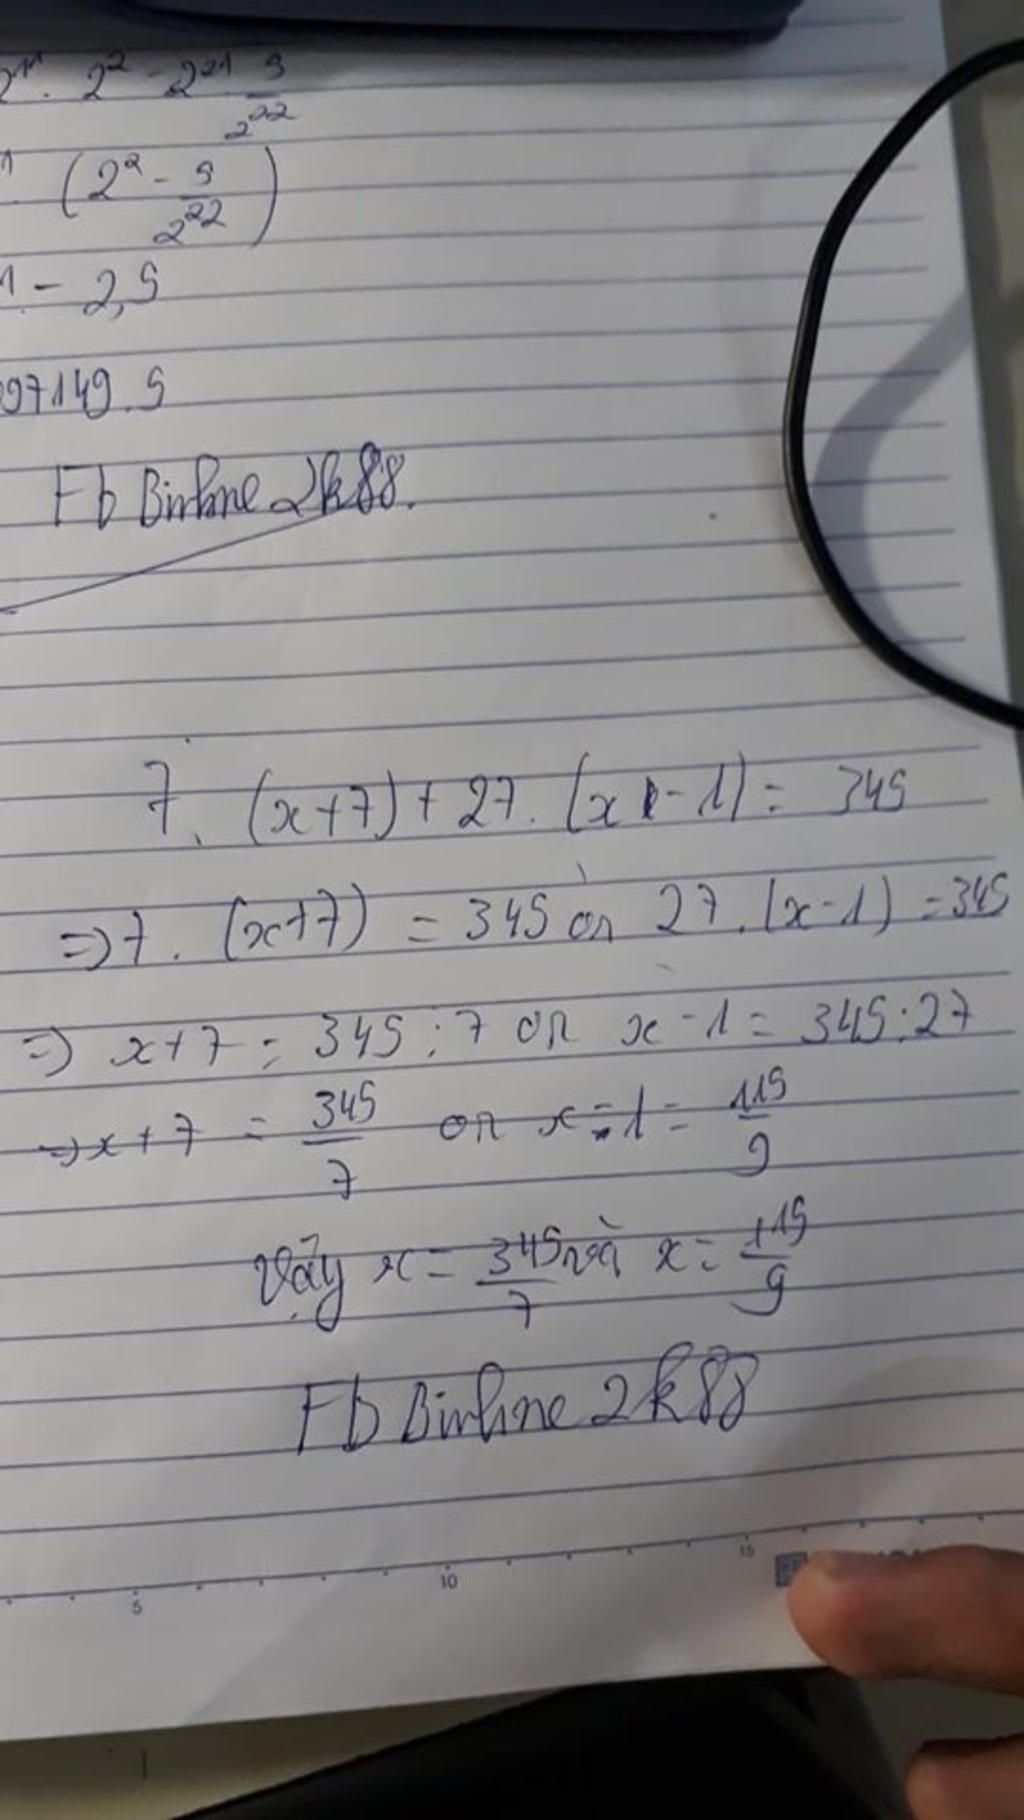 2² - 2²¹ 5/2²²
(2² - 5/2²²)
1 - 2,5
97149.5
Fb Birline 2k88.
7. (x+7) + 27. (x - 1) = 345
=> 7. (x+7) = 345 or 27. (x-1) = 345
=> x+7 = 345:7 or x-1 = 345:27
=> x+7 = 345/7 or x-1 = 115/9
Vậy x = 345/7 và x = 115/9
Fb Birline 2k88
5 10 15